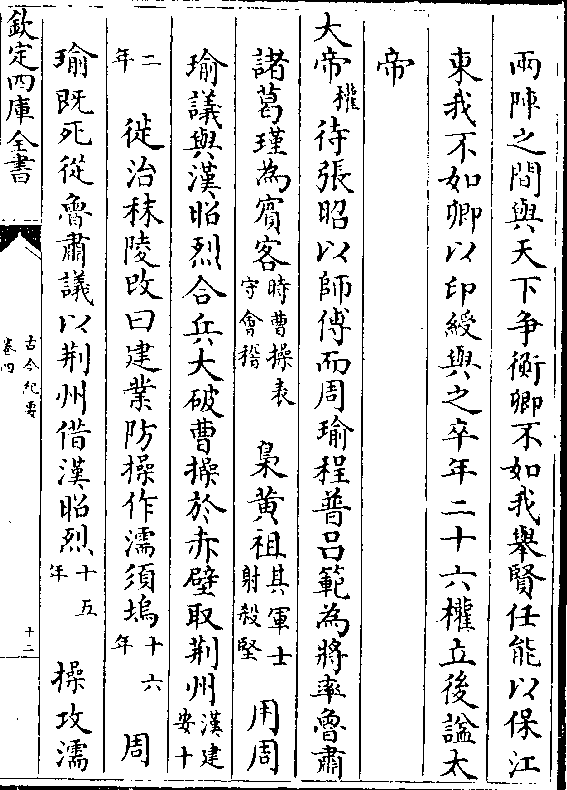 兩陣之間與天下爭衡卿不如我舉賢任能以保江
東我不如卿以印綬與之卒年二十六權立後諡太
帝
大帝權待張昭以師傅而周瑜程普吕範為將率魯肅
諸葛瑾為賓客時曹操表守會稽 梟黄祖其軍士射殺堅 用周
瑜議與漢昭烈合兵大破曹操於赤壁取荆州漢建安十
二年 徙治秣陵改曰建業防操作濡須塢十六年 周
瑜既死從魯肅議以荆州借漢昭烈十五年 操攻濡
欽定四庫全書
古今紀要
卷四
十二